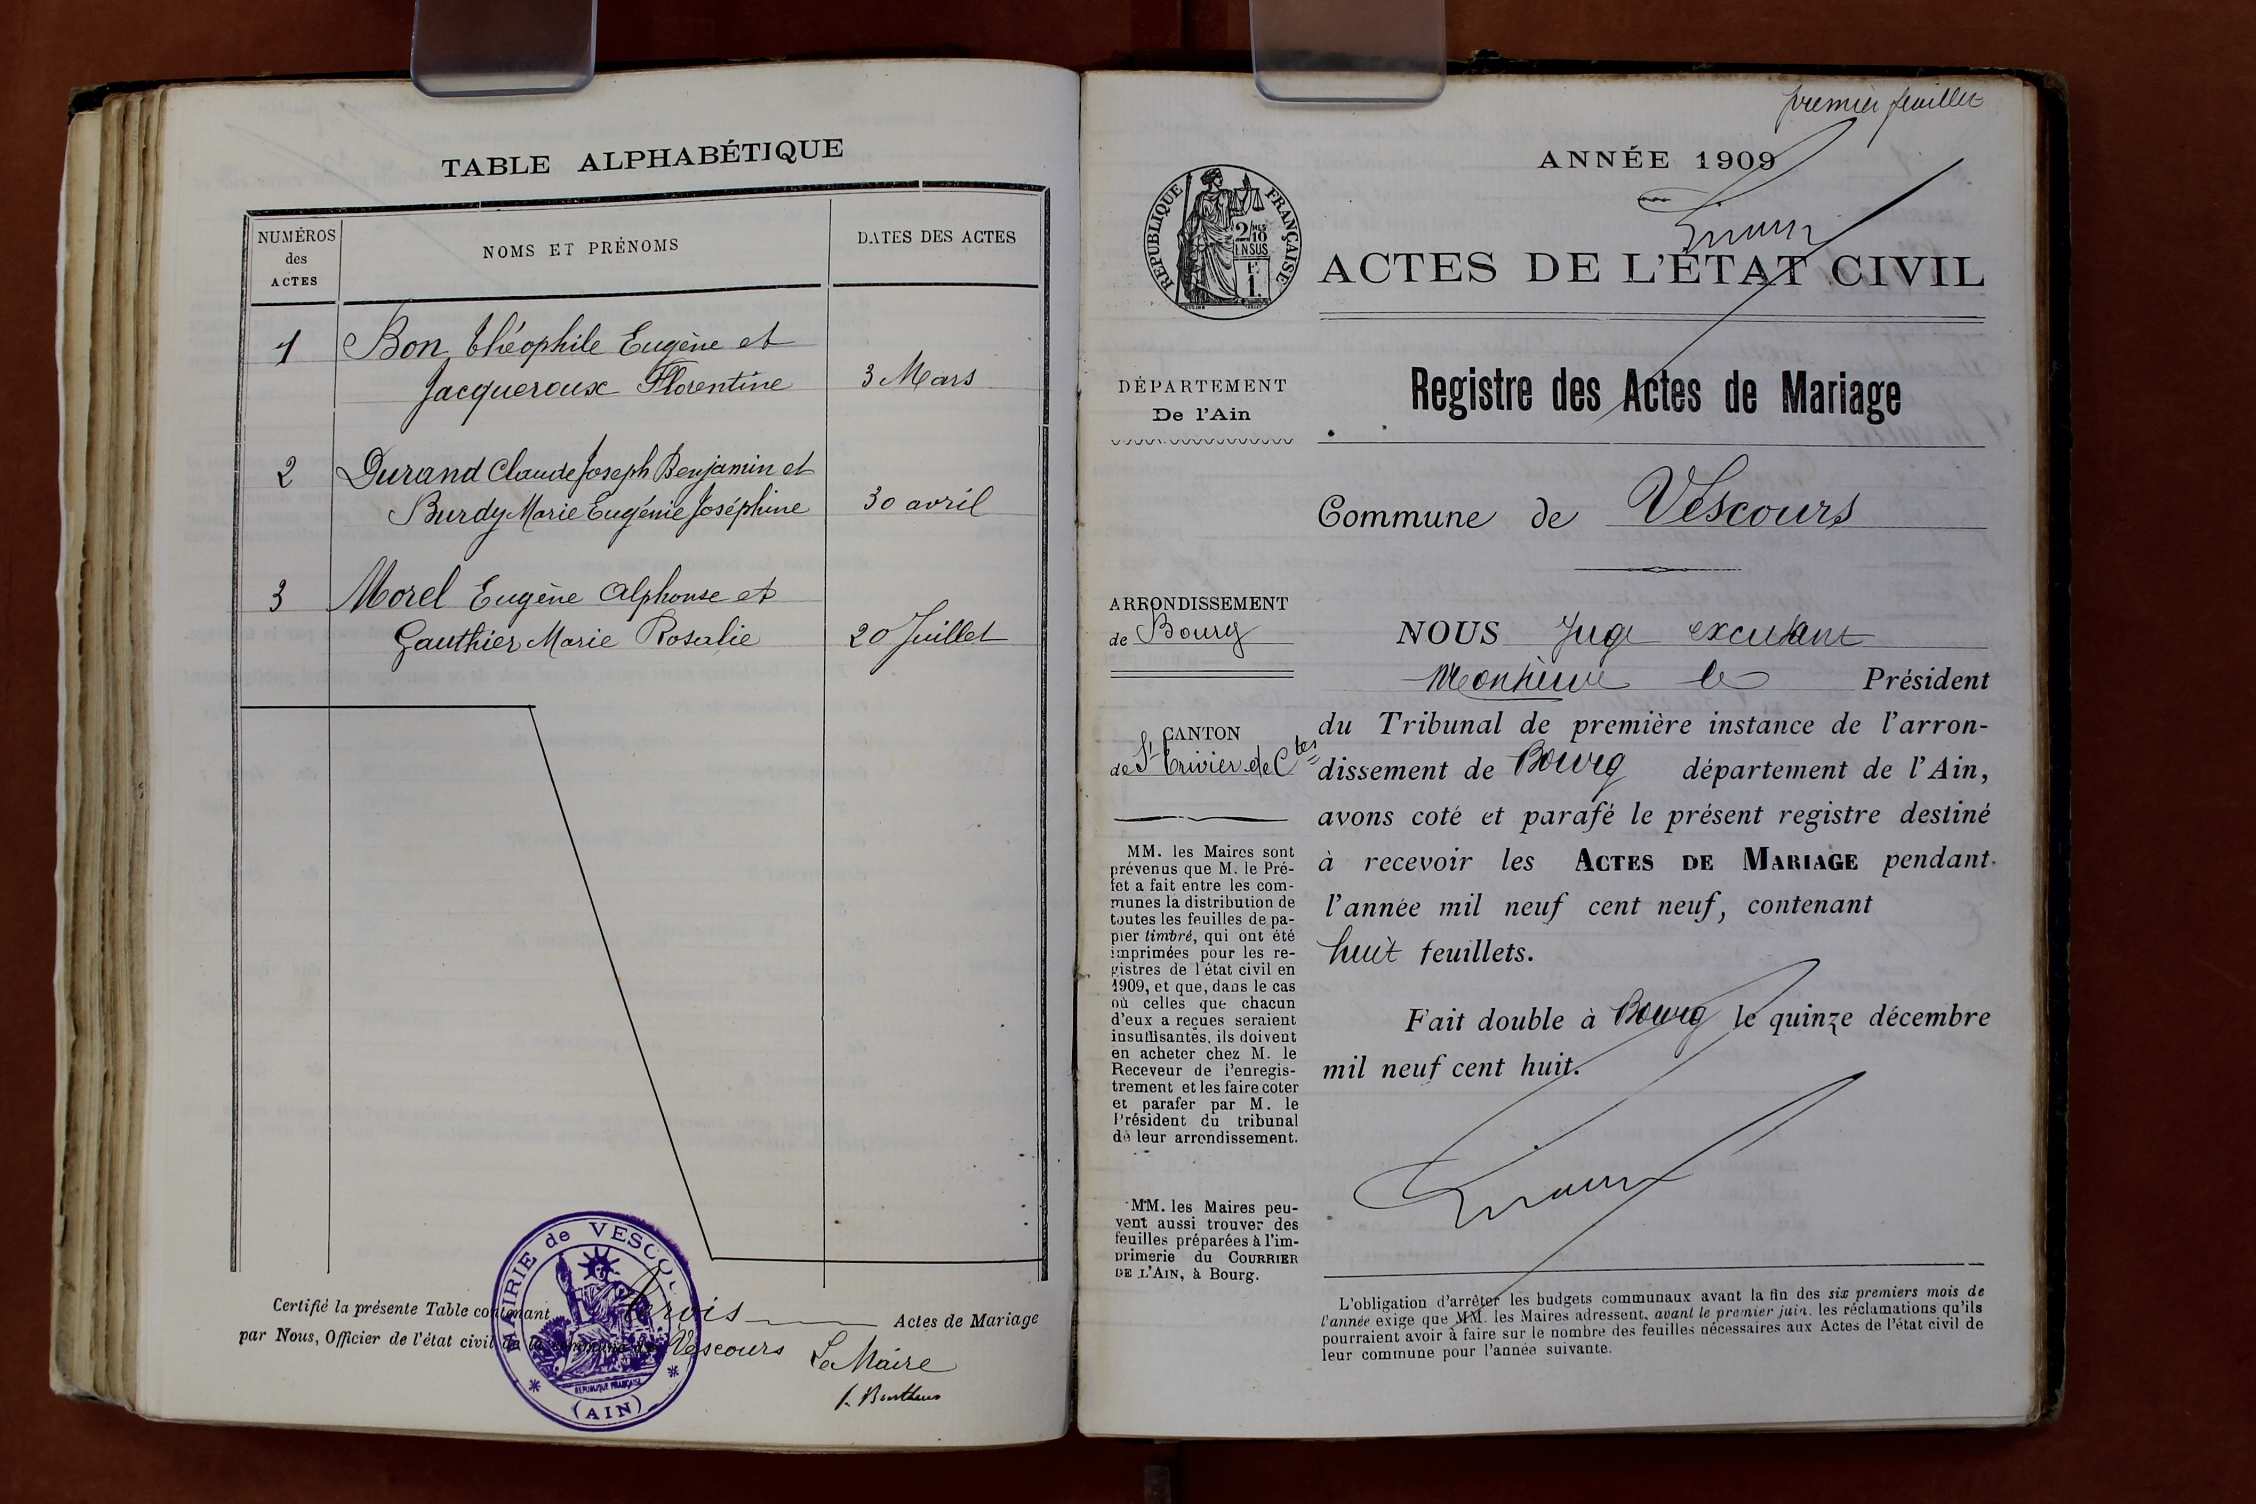 TABLE ALPHABÉTIQUE
NUMÉROS
des
ACTES
NOMS ET PRÉNOMS
DATES DES ACTES
1 Bon Théophile Eugène et
Jacqueroux Florentine 3 Mars
2 Durand Claude Joseph Benjamin et
Burdy Marie Eugénie Joséphine 30 avril
3 Morel Eugène Alphonse et
Gauthier Marie Rosalie 20 Juillet
MAIRIE de VESCOU
RÉPUBLIQUE FRANÇAISE
(AIN)
Certifié la présente Table contenant trois Actes de Mariage
par Nous, Officier de l'état civil de la commune de Vescours
Le Maire
premier feuillet
ANNÉE 1909
RÉPUBLIQUE FRANÇAISE
2/10
EN SUS
1 F.
ACTES DE L'ÉTAT CIVIL
DÉPARTEMENT
De l'Ain
ARRONDISSEMENT
de Bourg
CANTON
de St Trivier de Ctes
MM. les Maires sont
prévenus que M. le Pré-
fet a fait entre les com-
munes la distribution de
toutes les feuilles de pa-
pier timbré, qui ont été
imprimées pour les re-
gistres de l'état civil en
1909, et que, dans le cas
où celles que chacun
d'eux a reçues seraient
insuffisantes, ils doivent
en acheter chez M. le
Receveur de l'enregis-
trement et les faire coter
et parafer par M. le
Président du tribunal
de leur arrondissement.
MM. les Maires peu-
vent aussi trouver des
feuilles préparées à l'im-
primerie du COURRIER
DE L'AIN, à Bourg.
Registre des Actes de Mariage
Commune de Vescours
NOUS Juge
Monsieur le Président
du Tribunal de première instance de l'arron-
dissement de Bourg département de l'Ain,
avons coté et parafé le présent registre destiné
à recevoir les ACTES DE MARIAGE pendant
l'année mil neuf cent neuf, contenant
huit feuillets.
Fait double à Bourg le quinze décembre
mil neuf cent huit.
L'obligation d'arrêter les budgets communaux avant la fin des six premiers mois de
l'année exige que MM. les Maires adressent, avant le premier juin, les réclamations qu'ils
pourraient avoir à faire sur le nombre des feuilles nécessaires aux Actes de l'état civil de
leur commune pour l'année suivante.